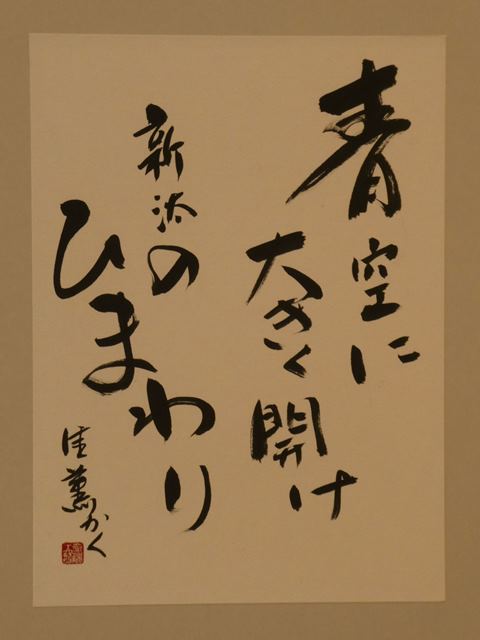 青空に
大きく開け
新汰の
ひまわり
佳薫かく